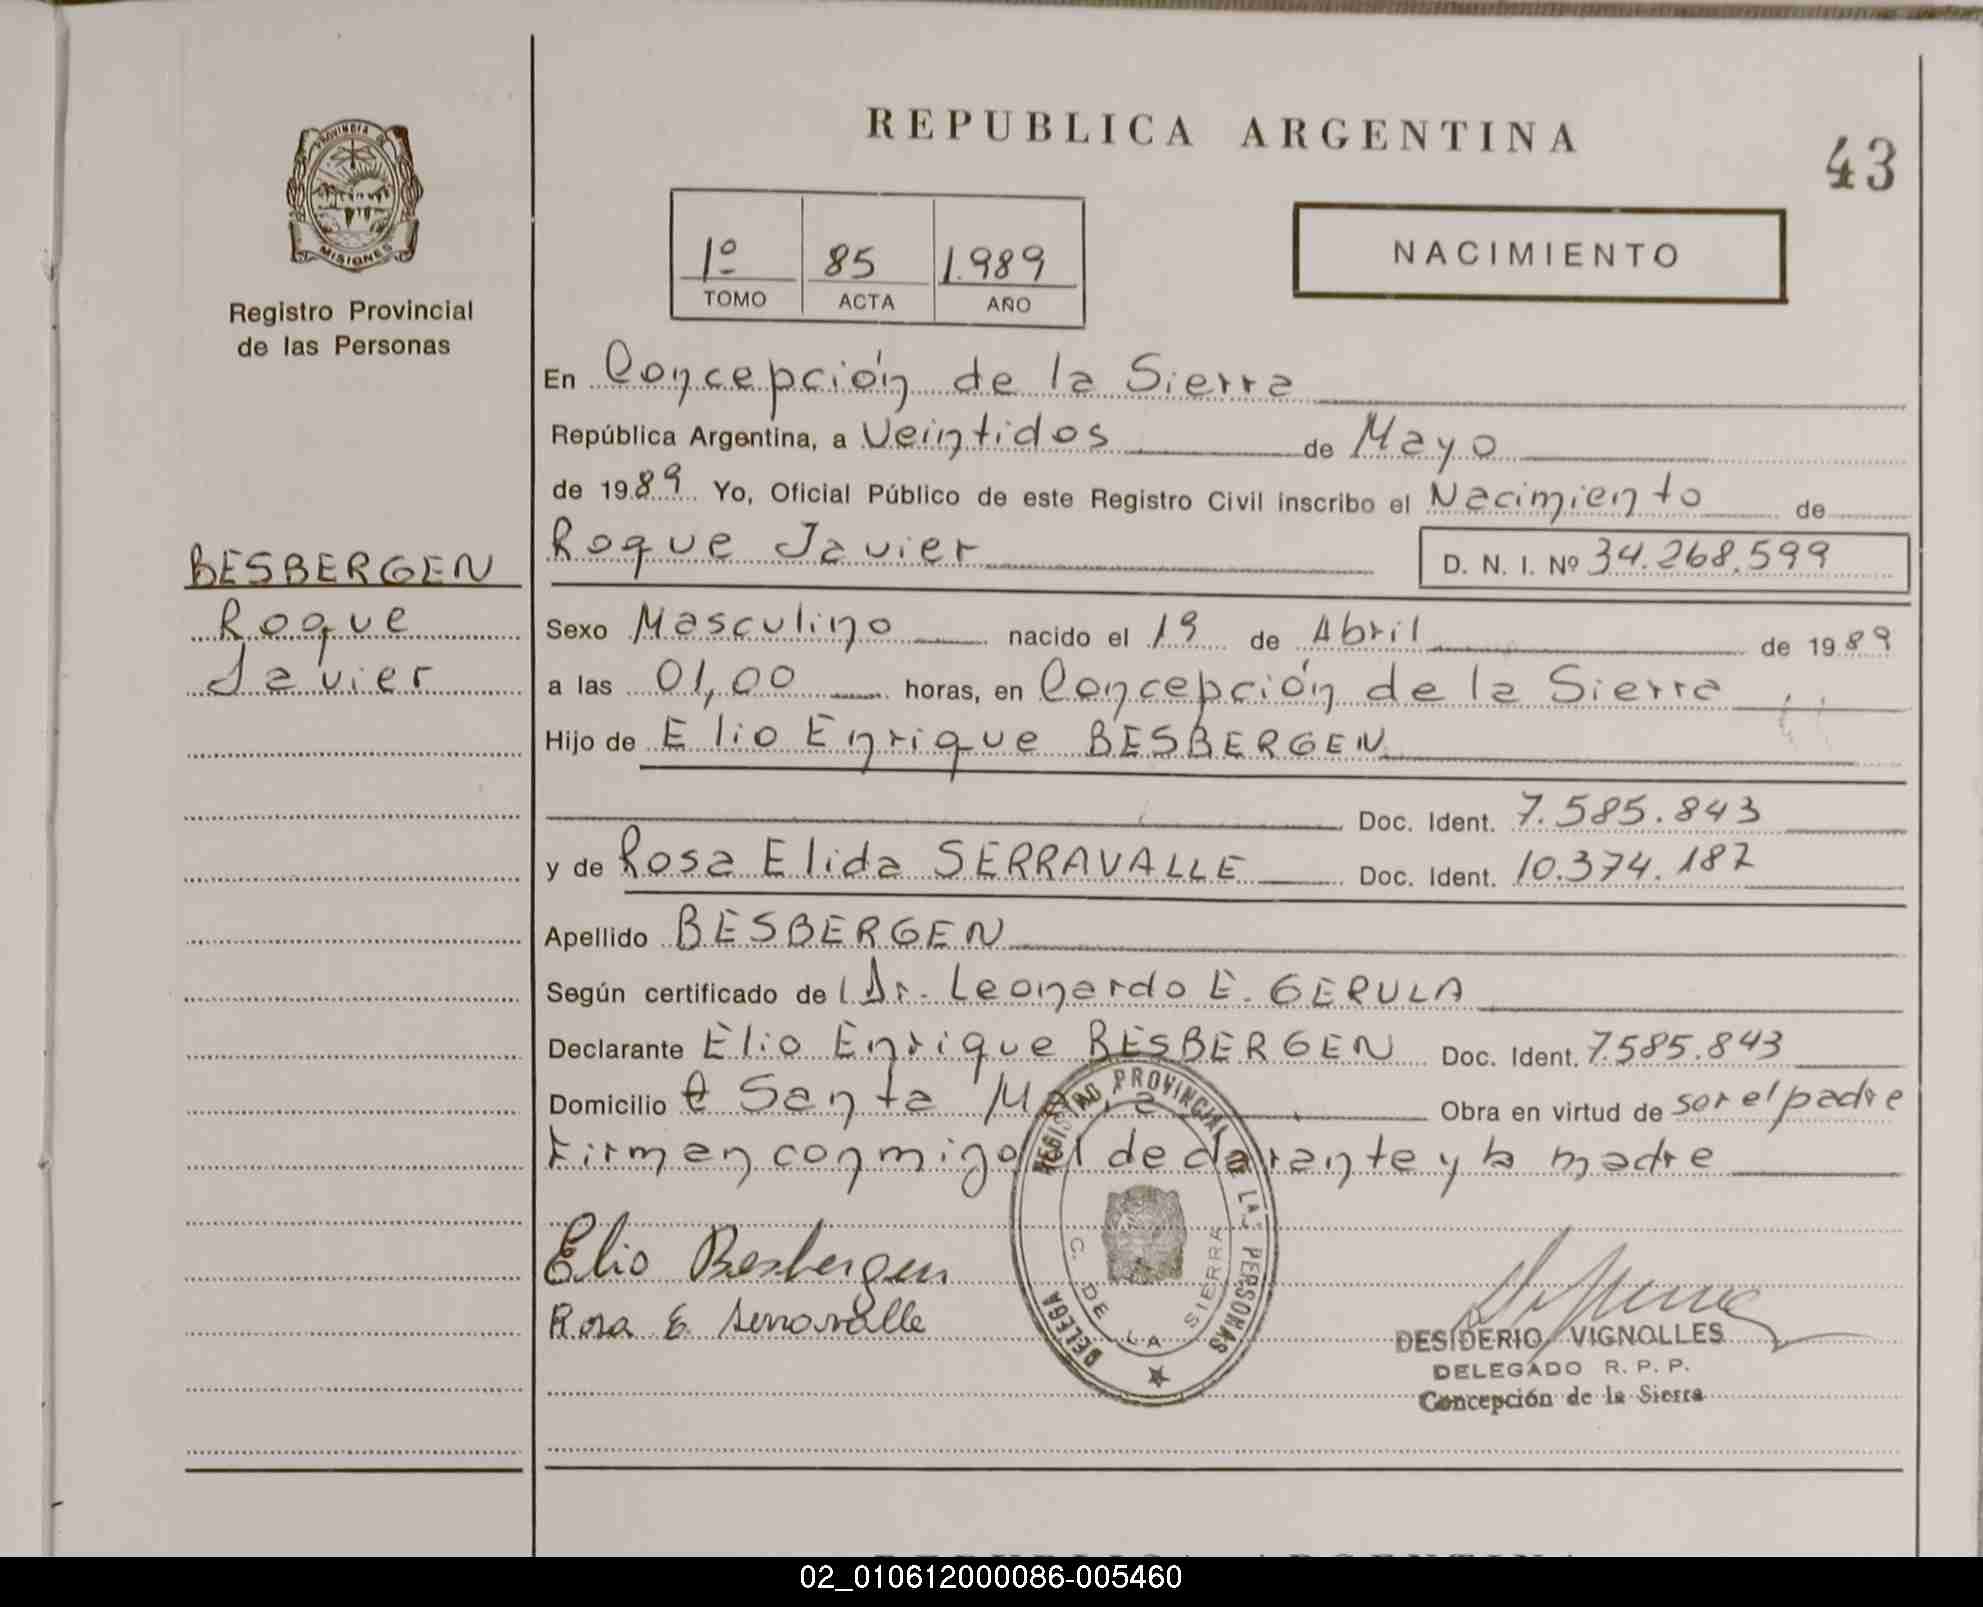 REPUBLICA ARGENTINA
43
PROVINCIA DE
MISIONES
Registro Provincial
de las Personas
1º 85 1.989
TOMO ACTA AÑO
NACIMIENTO
En Concepción de la Sierra
República Argentina, a Veintidos de Mayo
de 1989 Yo, Oficial Público de este Registro Civil inscribo el Nacimiento de
Roque Javier D. N. I. Nº 34.268.599
BESBERGEN
Roque
Javier
Sexo Masculino nacido el 19 de Abril de 1989
a las 01,00 horas, en Concepción de la Sierra
Hijo de Elio Enrique BESBERGEN
Doc. Ident. 7.585.843
y de Rosa Elida SERRAVALLE Doc. Ident. 10.374.187
Apellido BESBERGEN
Según certificado de Dr. Leonardo E. GERULA
Declarante Elio Enrique BESBERGEN Doc. Ident. 7.585.843
Domicilio Santa María Obra en virtud de ser el padre
Firman conmigo el declarante y la madre
Elio Besbergen
Rosa E. Serravalle
REGISTRO PROVINCIAL LAS PERSONAS
DELEGA
C. DE LA SIERRA
DESIDERIO VIGNOLLES
DELEGADO R. P. P.
Concepción de la Sierra
02_010612000086-005460